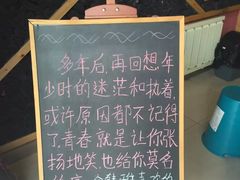 多年后,再回想年
少时的迷茫和执着,
或许原因都不记得
了.青春就是让你张
扬地笑也给你莫名